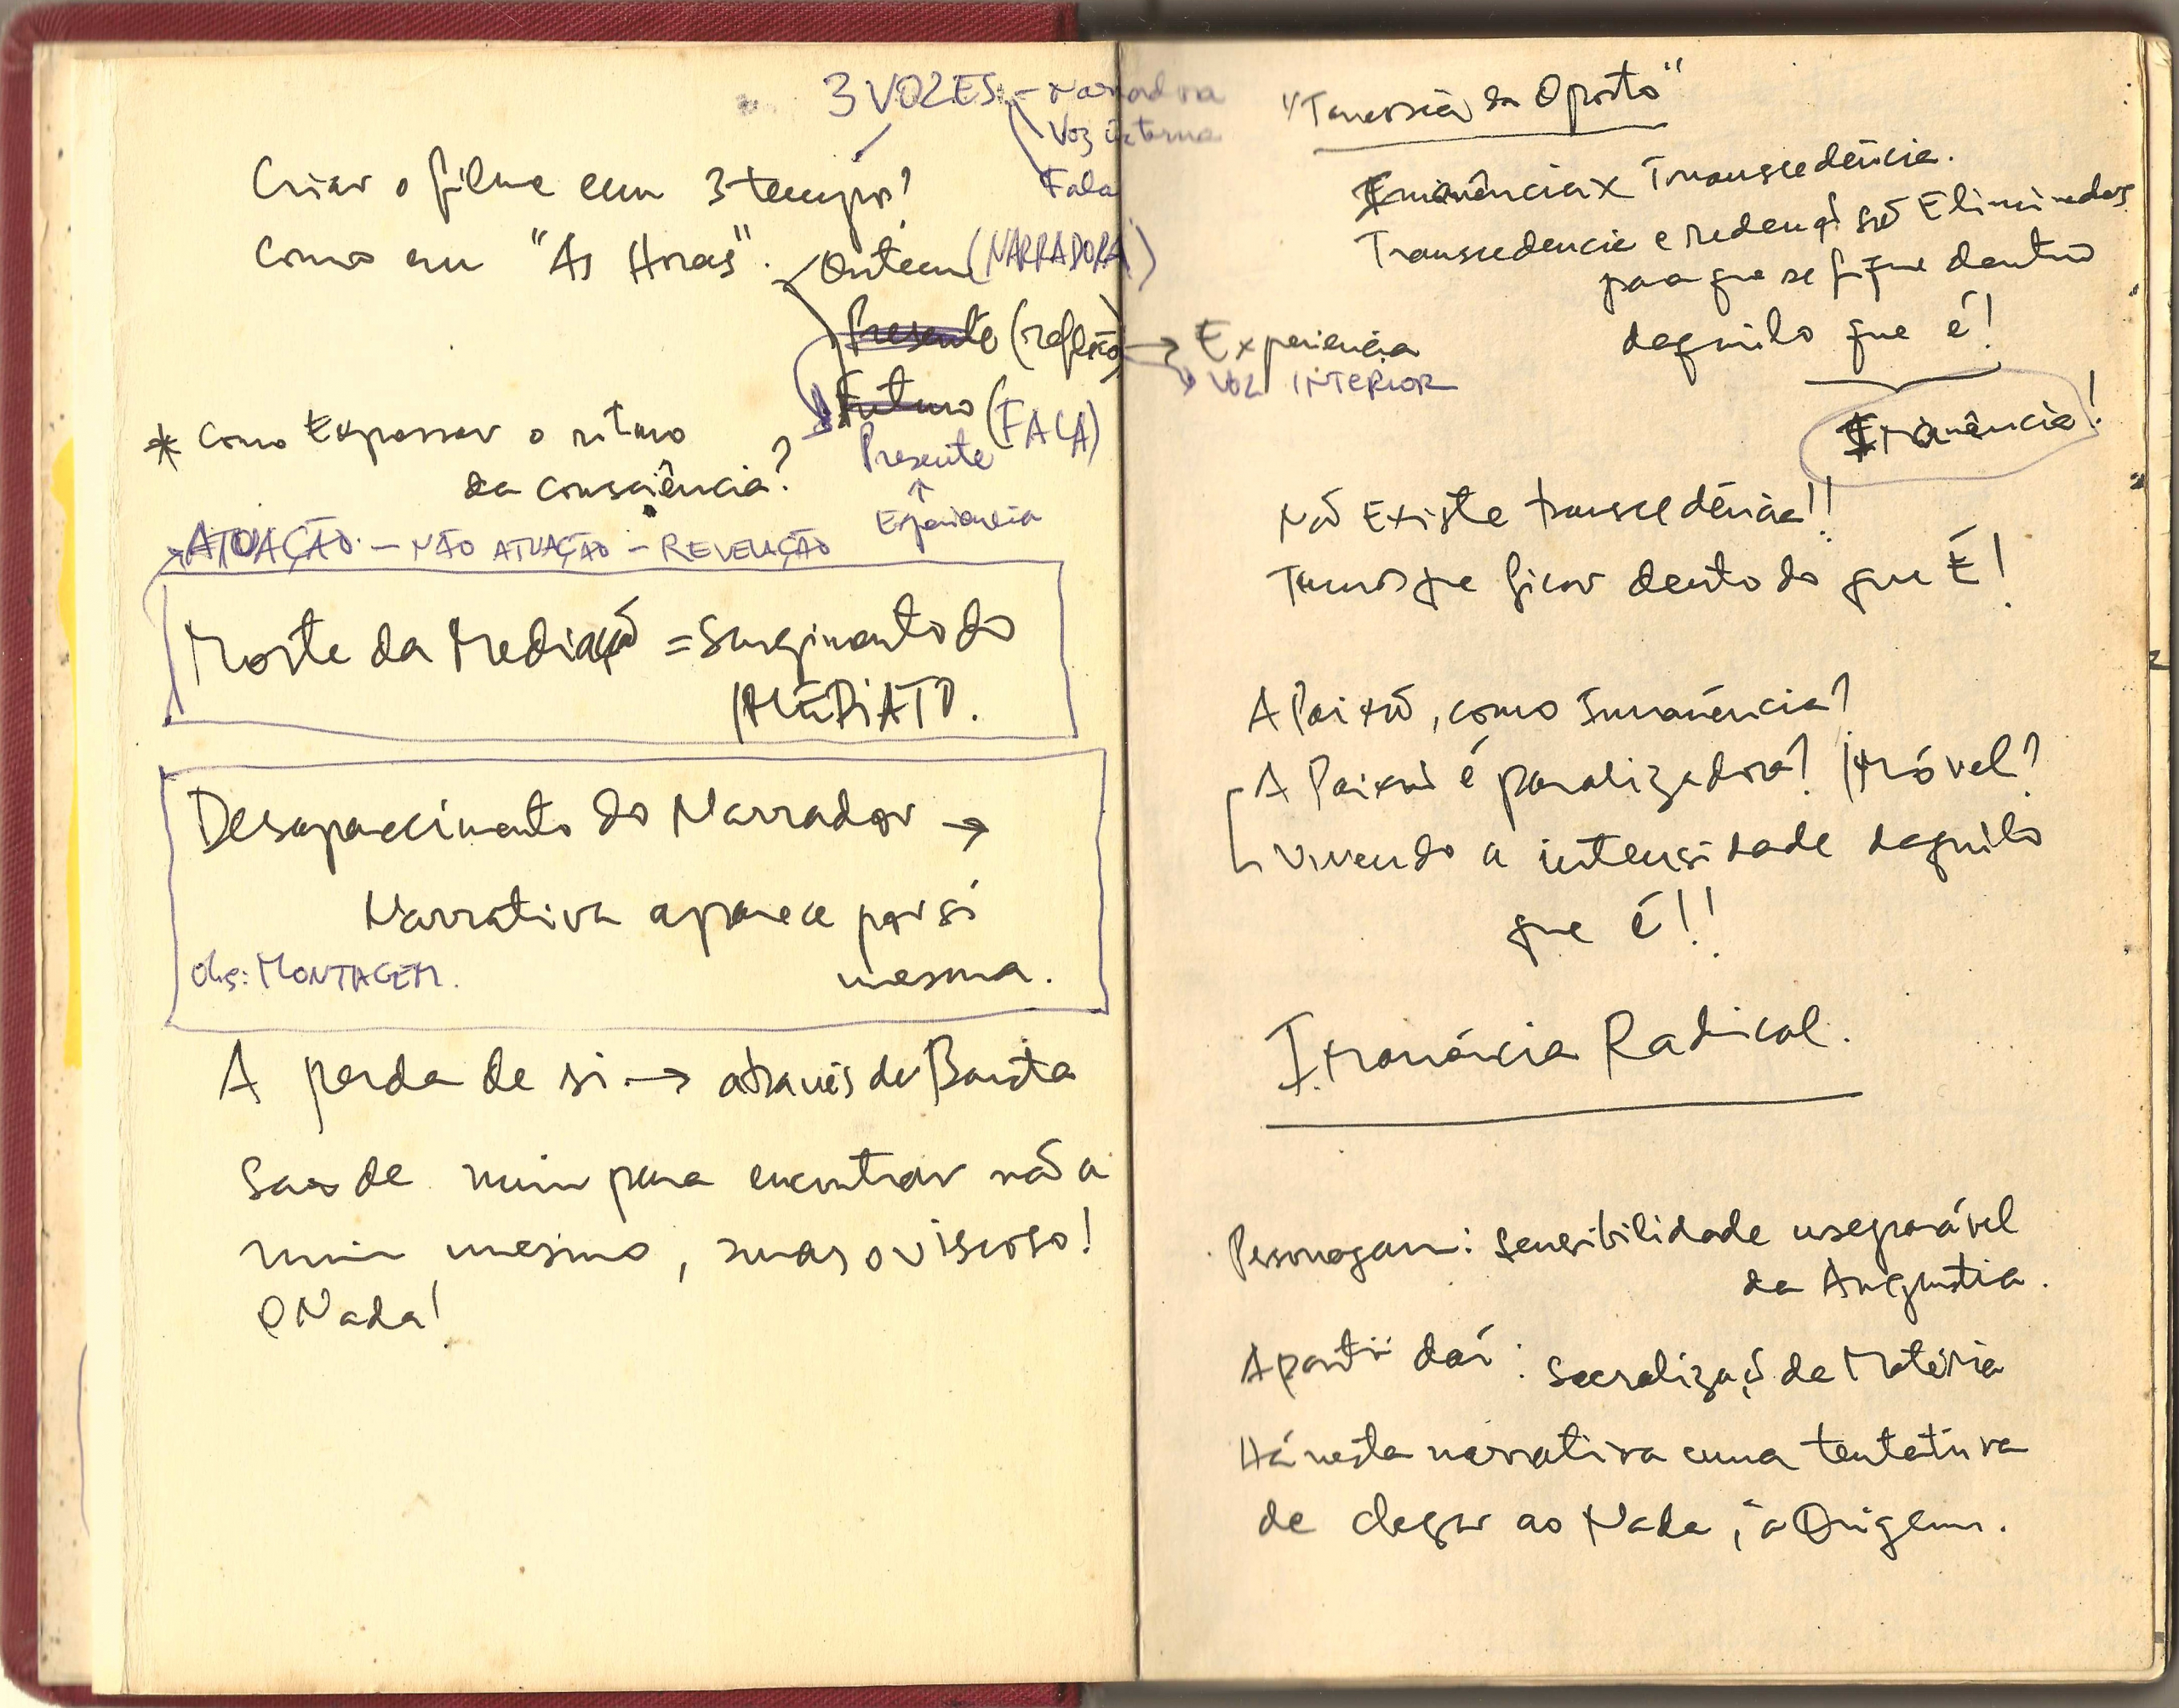 3 VOZES – Narradora
Voz interna
Fala
Criar o filme em 3 tempos?
Como em "As Horas".
Ontem (NARRADORA)
Presente (reflexão) → Experiencia
VOZ INTERIOR
Futuro (FALA)
Presente
↑
Experiencia
* Como Expressar o ritmo
da consciência?
ATUAÇÃO – NÃO ATUAÇÃO – REVELAÇÃO
Morte da Mediação = Surgimento do
IMEDIATO.
Desaparecimento do Narrador →
Narrativa aparece por si
mesma.
Obs: MONTAGEM.
A perda de si → através da Barata
Saio de mim para encontrar não a
mim mesmo, mas o viscoso!
O Nada!
"Travessia do Oposto"
Imanência x Transcedência.
Transcedencia e redenção são Eliminadas
para que se fique dentro
daquilo que é!
Imanência!
Não Existe transcedência!!
Temos que ficar dentro do que É!
A Paixão, como imanência?
A Paixão é paralizadora? Imóvel?
Vivendo a intensidade daquilo
que é!!
Imanência Radical.
Personagem: sensibilidade inseparável
da Angustia.
A partir daí: Sacralização da Matéria
Há nesta narrativa uma tentativa
de chegar ao Nada, à Origem.